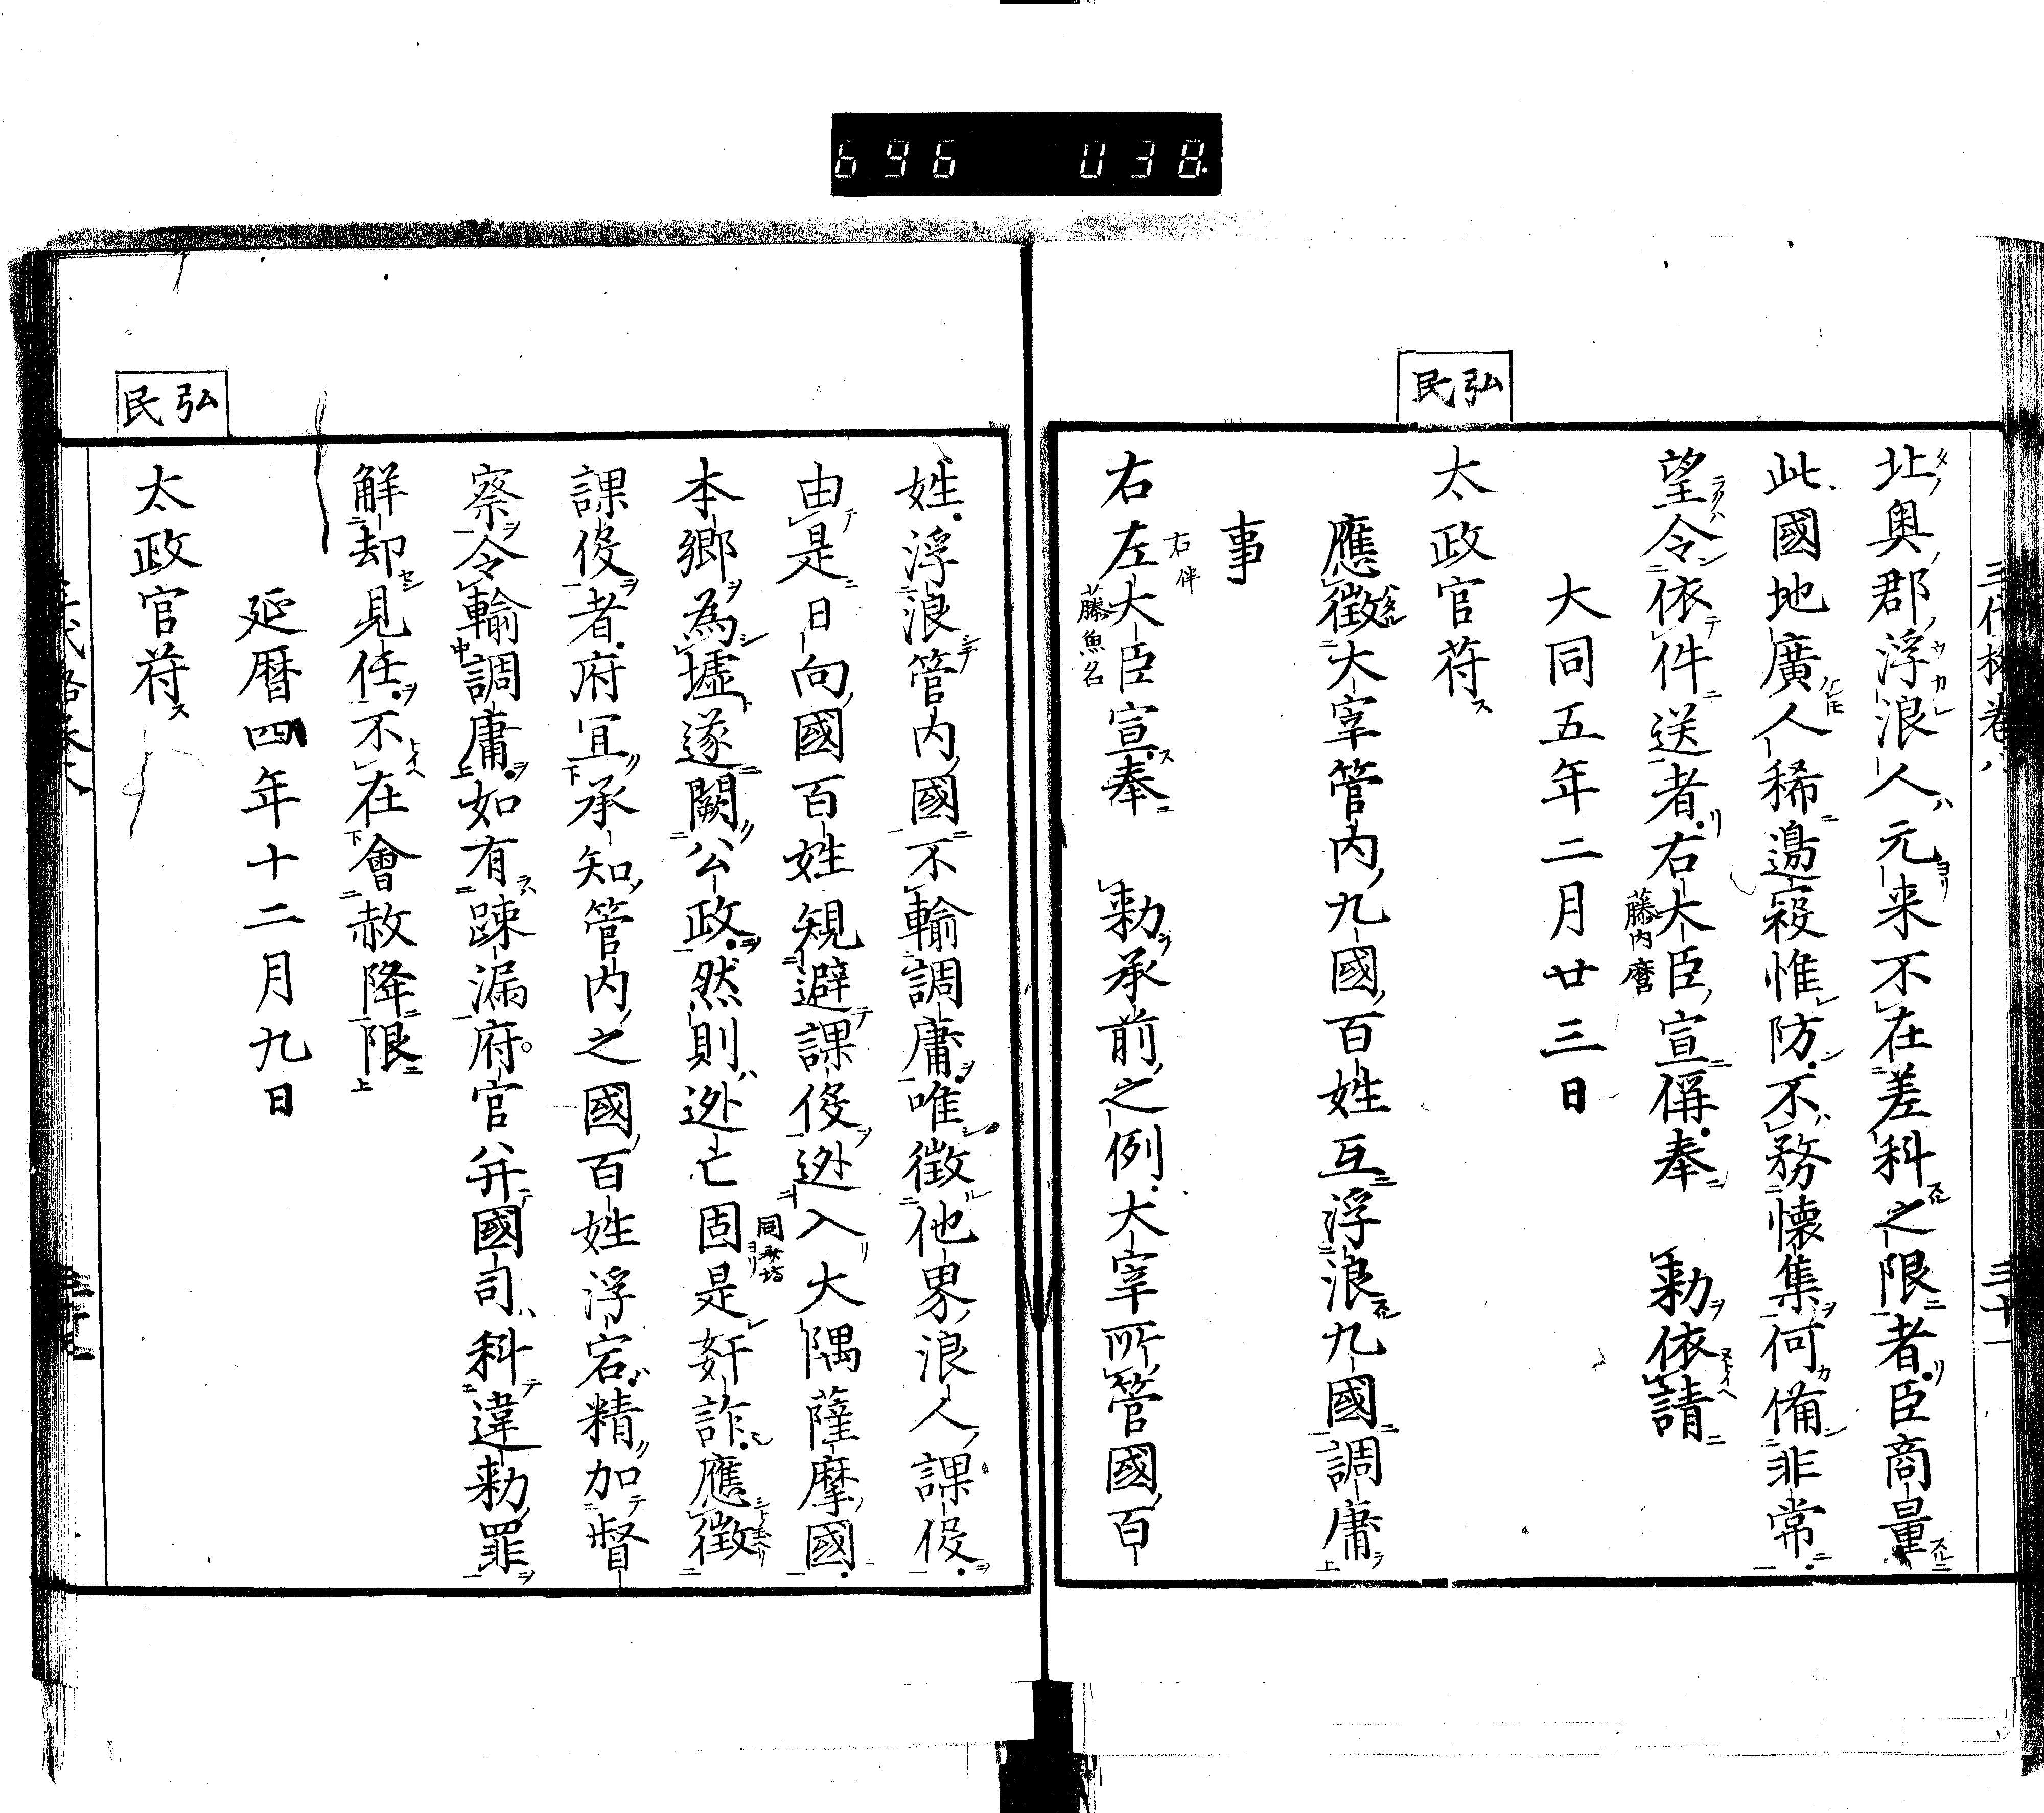 696 038
三代格卷八 三十一
弘民
北奥郡浮浪人元来不在差科之限者臣商量
此國地廣人稀邉寇惟防不務懐集何備非常
望令依件送者右大臣宣偁奉 勅依請
藤内麿
大同五年二月廿三日
太政官苻
應徴大宰管内九國百姓互浮浪九國調庸
事
右左大臣宣奉 勅承前之例大宰所管國百
右伴
藤魚名
姓浮浪管内國不輸調庸唯徴他界浪人課役
由是日向國百姓規避課役迯入大隅薩摩國
本鄉為墟遂闕公政然則迯亡固是姧詐應徴
課役者府冝承知管内之國百姓浮宕精加督
察令輸調庸如有踈漏府官并國司科違勅罪
解却見任不在會赦降限
延暦四年十二月九日
弘民
太政官苻